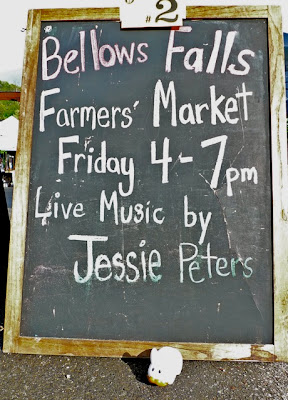 # 2
Bellows Falls
Farmers' Market
Friday 4-7pm
Live Music by
Jessie Peters